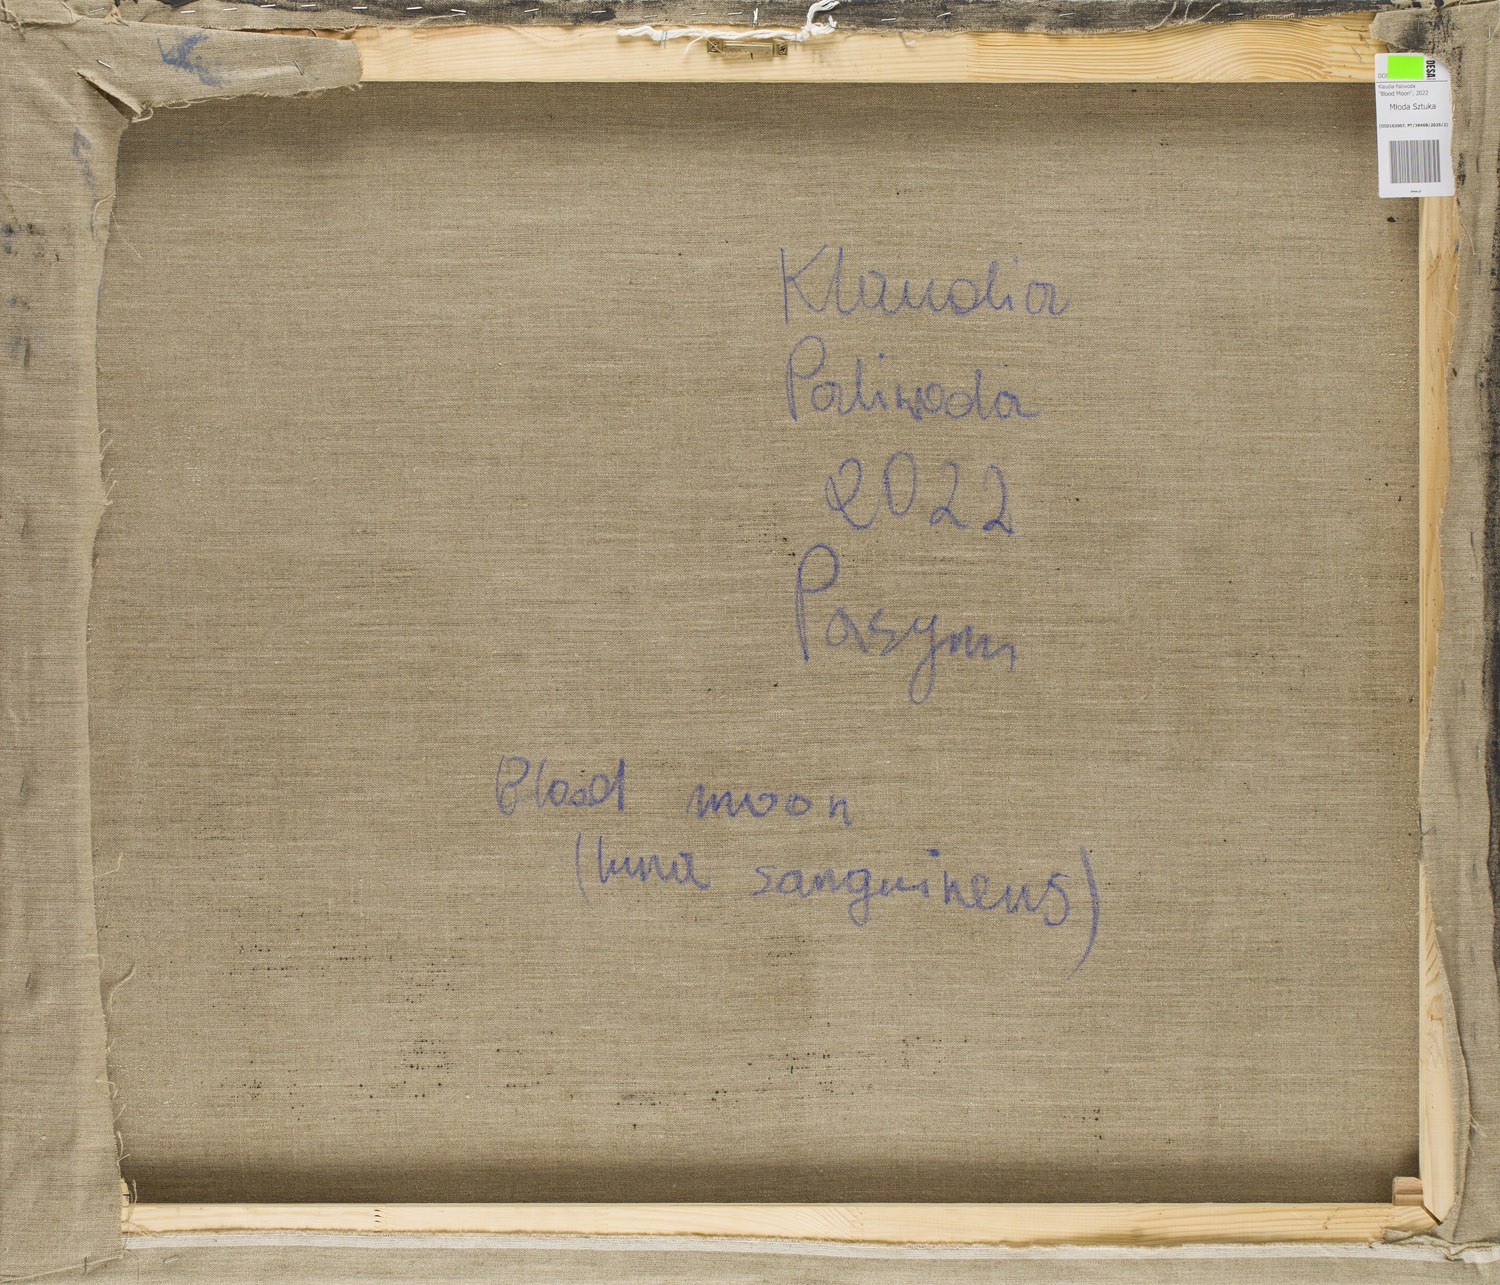 DESA
Klaudia Paliwoda
"Blood Moon", 2022
Młoda Sztuka
Klaudia
Paliwoda
2022
Pasym
Blood moon
(luna sanguineus)